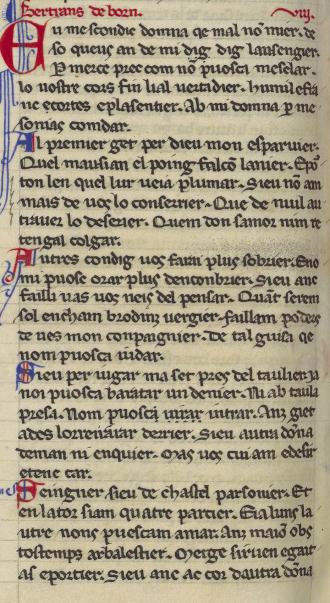 Bertrans de born. viij.
Eu mescondic domna qe mal nõ mier. de
so queus an de mi dig dig lausengier.
Per merce prec com nõ puosca mesclar.
lo uostre cors fin lial uertadier. humil e frã
nc e cortes e plasentier. Ab mi domna p me
songas comdar.
Al premier get per dieu mon esparuier.
Quel mausian el poing falcõ lanier. E por
ton len quel lur ueia plumar. Sieu nõ am
mais de uos lo consirier. Que de nuil au
tra uer lo desirier. Quem don samor nim re
tengal colgar.
Autres condig uos farai plus sobrier. E no
mi puosc orar plus denconbrier. Sieu anc
failli uas uos neis del pensar. Quãt serem
sol en chambr o dinz uergier. faillam poders
de ues mon conpaignier. De tal guisa qe
nom puosca iudar.
Sieu per iugar ma set pres del taulier. Ja
noi puosca baratar un denier. Ni ab taula
presa. Nom puosca uirar intrar. Anz giet
ades lo reirazar derrier. Sieu autra dõna
deman ni enquier. Mas uos cui am e desir
e tenc car.
Seingner sieu de chastel parsonier. Et
en la tor siam quatre parcier. E ia luns la
utre nons puescam amar. Anz maiõ obs
tostemps arbalestier. Metge siruen e gait
as e portier. Sieu anc ac cor dautra dõna